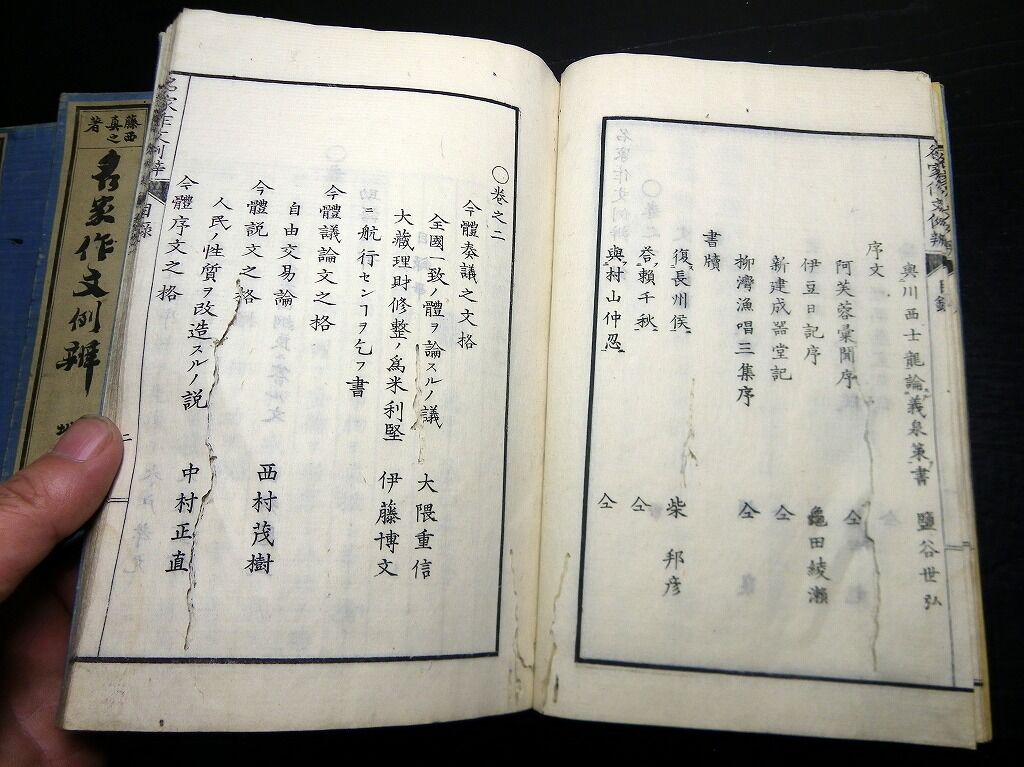 名家作文例辨
目録
與川西士龍論義泉策書 鹽谷世弘
序文
阿芙蓉彙聞序 仝
伊豆日記序 龜田綾瀬
新建成器堂記 仝
柳灣漁唱三集序 仝
書牘
復長州侯 柴邦彦
答賴千秋 仝
與村山仲忍 仝
〇卷之二
今體奏議之文格
全國一致ノ體ヲ論スルノ議 大隈重信
大藏理財修整ノ爲米利堅 伊藤博文
ニ航行センヿヲ乞フ書
今體議論文之格
自由交易論 西村茂樹
今體説文之格
人民ノ性質ヲ改造スルノ説 中村正直
今體序文之格
名家作文例辨
目録
二
藤西
真之
著
名家作文例辨